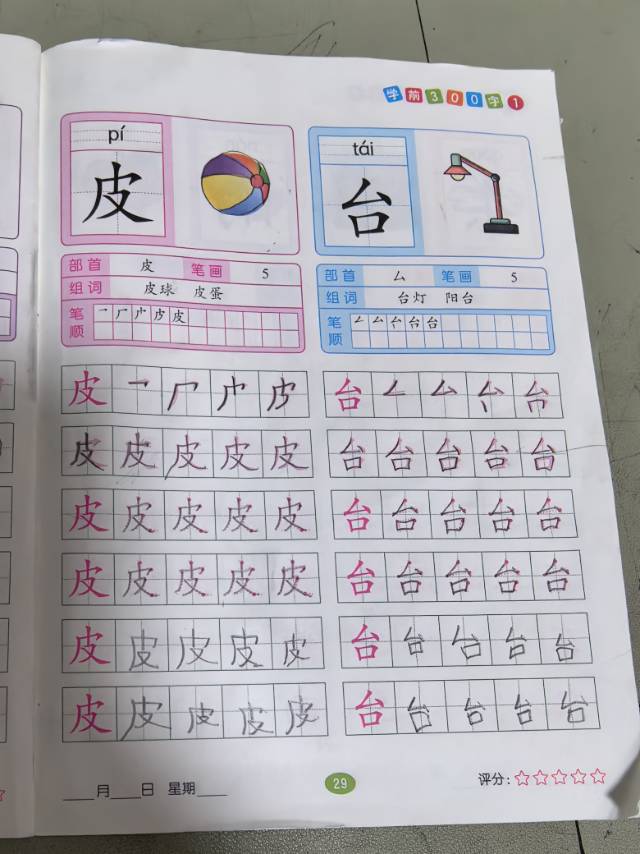 学前300字 1
pí
皮
tái
台
部首 皮 笔画 5
组词 皮球 皮蛋
笔顺
部首 厶 笔画 5
组词 台灯 阳台
笔顺
皮 一 厂 广 皮
台 厶 厶 台 台
皮 皮 皮 皮 皮
台 台 台 台 台
皮 皮 皮 皮 皮
台 台 台 台 台
皮 皮 皮 皮 皮
台 台 台 台 台
皮 皮 皮 皮 皮
台 台 台 台 台
皮 皮 皮 皮 皮
台 台 台 台 台
____月____日 星期____
29
评分:☆☆☆☆☆